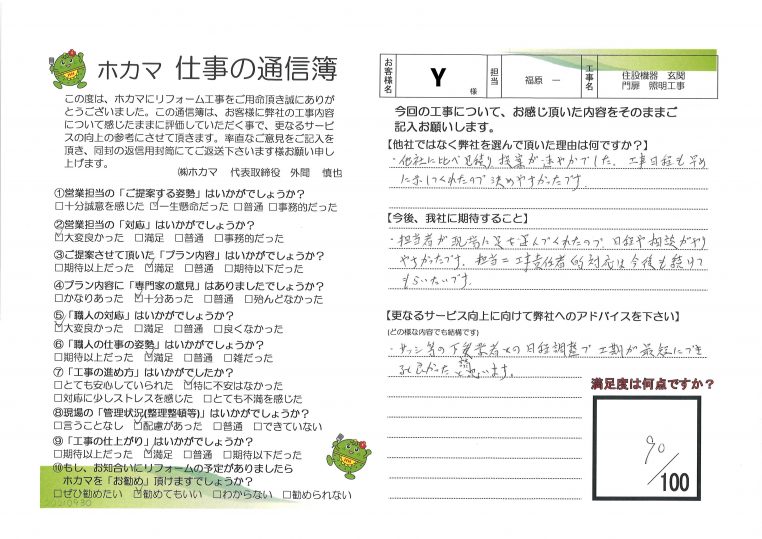 ホカマ 仕事の通信簿
この度は、ホカマにリフォーム工事をご用命頂き誠にありが
とうございました。この通信簿は、お客様に弊社の工事内容
について感じたままに評価していただく事で、更なるサービ
スの向上の参考にさせて頂きます。率直なご意見をご記入を
頂き、同封の返信用封筒にてご返送下さいます様お願い申し
上げます。
㈱ホカマ 代表取締役 外間 慎也
①営業担当の「ご提案する姿勢」はいかがでしょうか?
□十分誠意を感じた ☑一生懸命だった □普通 □事務的だった
②営業担当の「対応」はいかがでしょうか?
☑大変良かった □満足 □普通 □事務的だった
③ご提案させて頂いた「プラン内容」はいかがでしょうか?
□期待以上だった ☑満足 □普通 □期待以下だった
④プラン内容に「専門家の意見」はありましたでしょうか?
□かなりあった ☑十分あった □普通 □殆んどなかった
⑤「職人の対応」はいかがでしょうか?
☑大変良かった □満足 □普通 □良くなかった
⑥「職人の仕事の姿勢」はいかがでしょうか?
□期待以上だった ☑満足 □普通 □雑だった
⑦「工事の進め方」はいかがでしたか?
□とても安心していられた ☑特に不安はなかった
□対応に少しストレスを感じた □とても不満を感じた
⑧現場の「管理状況(整理整頓等)」はいかがでしょうか?
□言うことなし ☑配慮があった □普通 □できていない
⑨「工事の仕上がり」はいかがでしょうか?
□期待以上だった ☑満足 □普通 □期待以下だった
⑩もし、お知合いにリフォームの予定がありましたら
ホカマを「お勧め」頂けますでしょうか?
□ぜひ勧めたい ☑勧めてもいい □わからない □勧められない
お客様名
Y
様
担当
福原 一
工事名
住設機器 玄関
門扉 照明工事
今回の工事について、お感じ頂いた内容をそのままご
記入お願いします。
【他社ではなく弊社を選んで頂いた理由は何ですか?】
・他社に比べ見積り提案が速やかでした。工事日程も早め
に示してくれたので決めやすかったです。
【今後、我社に期待すること】
・担当者が現場に足を運んでくれたので、日程や相談がやり
やすかったです。担当=工事責任者的対応は今後も続けて
もらいたいです。
【更なるサービス向上に向けて弊社へのアドバイスを下さい】
(どの様な内容でも結構です)
・サッシ等の下請業者との日程調整で工期が最短にでき
れば良かたと思います。
満足度は何点ですか?
90
/100